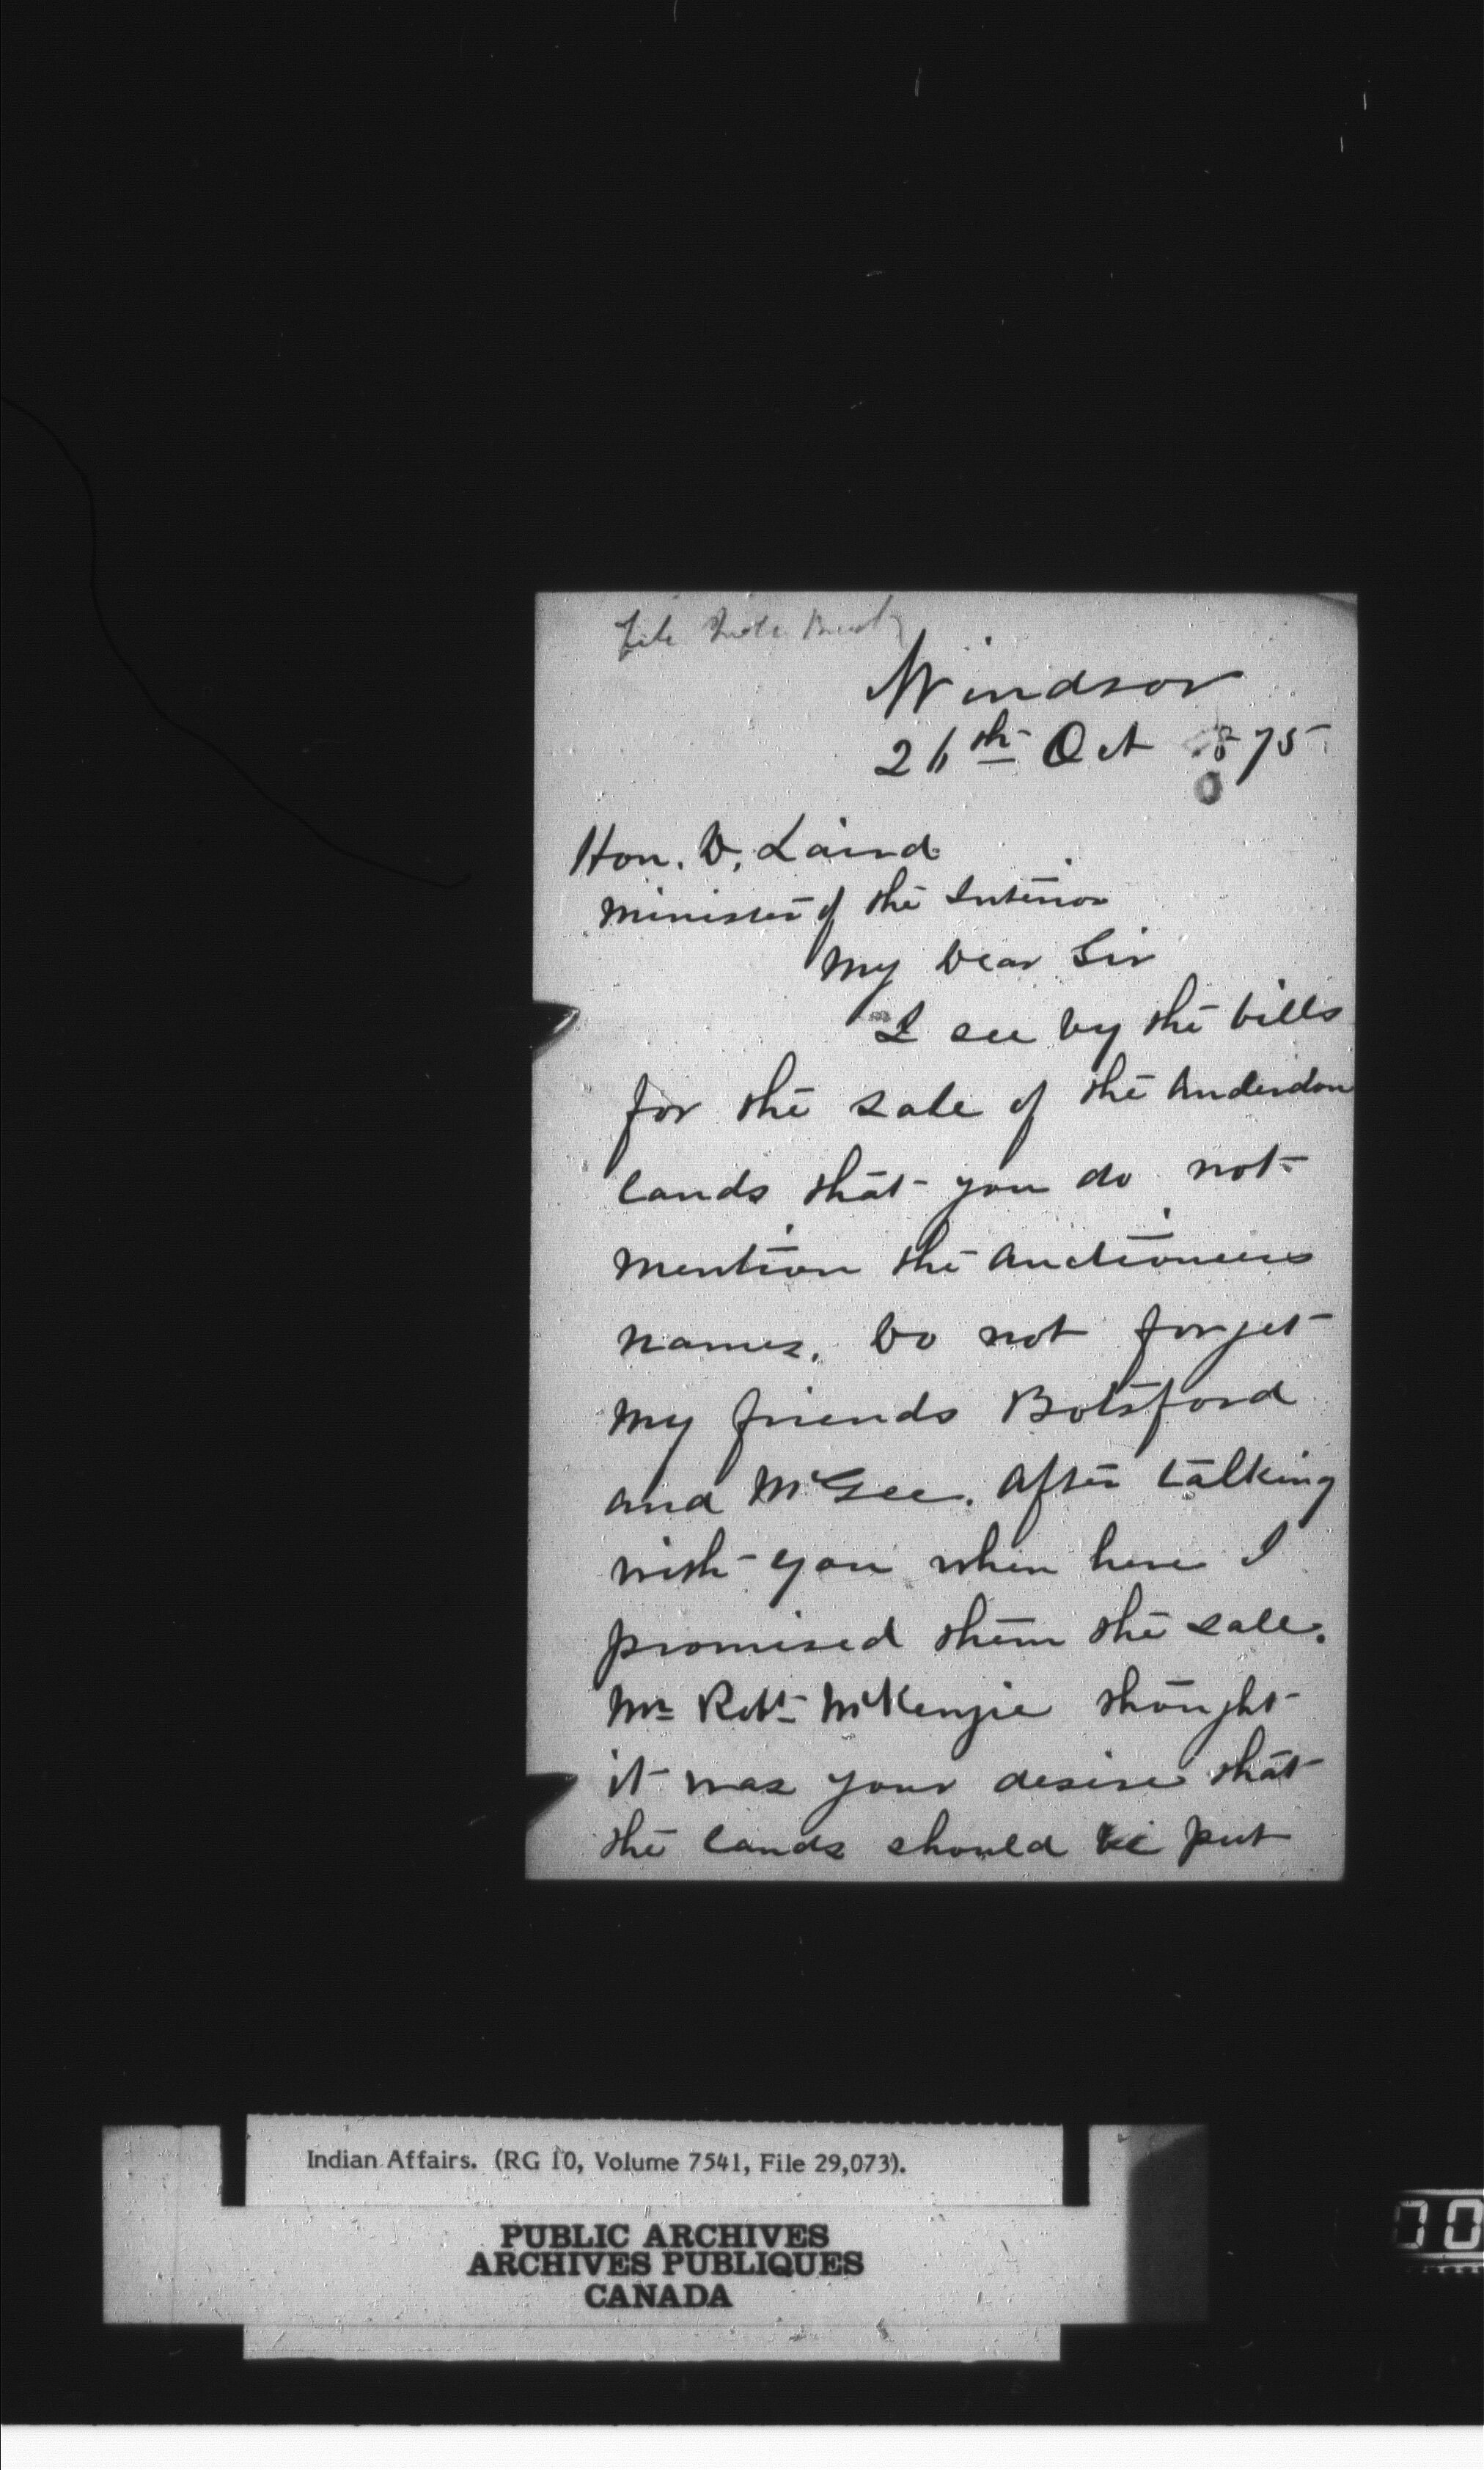 File
Windsor
26th Oct 875
Hon. D. Laird
Minister of the Interior
My Dear Sir
I see by the bills
for the sale of the Anderdon
lands that you do not
mention the Auctioneers
names. Do not forget
my friends Botsford
and McGee. After talking
with you when here I
promised them the sale.
Mr Robt McKenzie thought
it was your desire that
the lands should be put
Indian Affairs. (RG 10, Volume 7541, File 29,073).
PUBLIC ARCHIVES
ARCHIVES PUBLIQUES
CANADA